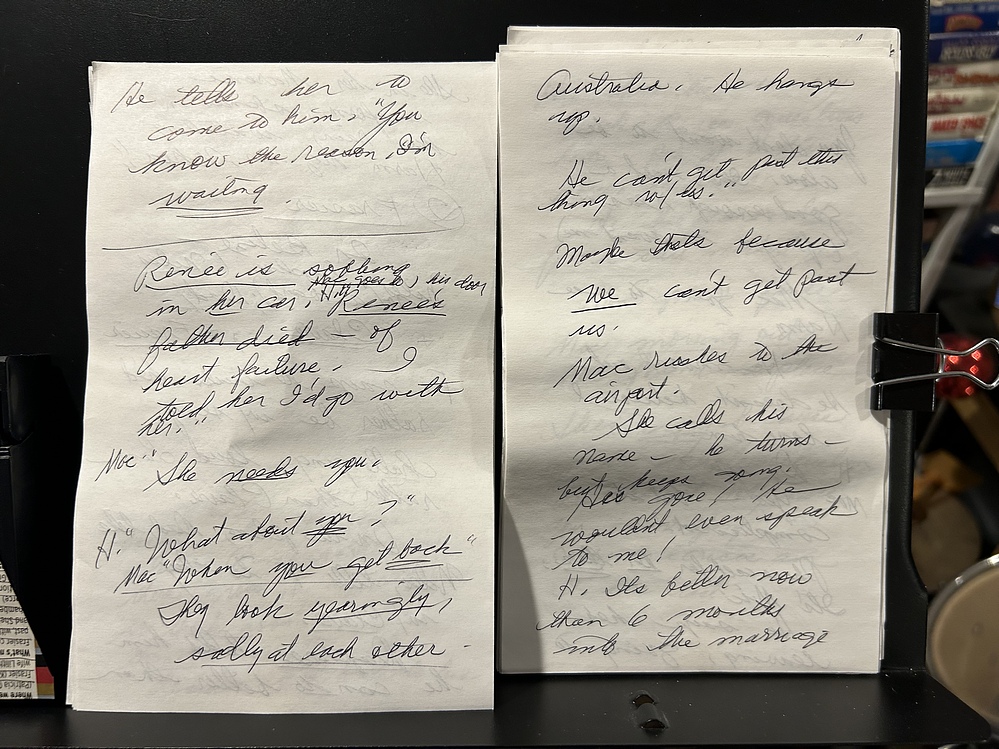 He tells her to
come to him, "You
know the reason, I'm
waiting.
Renée is sobbing
Mac goes to, his door
in her car, H: "Renee's
father died – of
heart failure. I
told her I'd go with
her."
Mac: "She needs you.
H. "What about you?"
Mac "When you get back"
They look yearningly,
sadly at each other –
Australia. He hangs
up.
He can't get past this
thing w/
Maybe thats because
we can't get past
us.
Mac rushes to the
airport.
She calls his
name – he turns –
but keeps going.
He's gone! He
wouldn't even speak
to me!
H. Its better now
than 6 months
into the marriage
What's
wife Lilith
Frasier